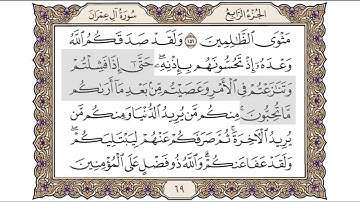 الجزء الرابع سورة آل عمران
مَثْوَى ٱلظَّٰلِمِينَ ١٥١ وَلَقَدْ صَدَقَكُمُ ٱللَّهُ
وَعْدَهُۥٓ إِذْ تَحُسُّونَهُم بِإِذْنِهِۦ ۖ حَتَّىٰٓ إِذَا فَشِلْتُمْ
وَتَنَٰزَعْتُمْ فِى ٱلْأَمْرِ وَعَصَيْتُم مِّنۢ بَعْدِ مَآ أَرَىٰكُم
مَّا تُحِبُّونَ ۚ مِنكُم مَّن يُرِيدُ ٱلدُّنْيَا وَمِنكُم مَّن
يُرِيدُ ٱلْءَاخِرَةَ ۚ ثُمَّ صَرَفَكُمْ عَنْهُمْ لِيَبْتَلِيَكُمْ ۖ
وَلَقَدْ عَفَا عَنكُمْ ۗ وَٱللَّهُ ذُو فَضْلٍ عَلَى ٱلْمُؤْمِنِينَ
٦٩